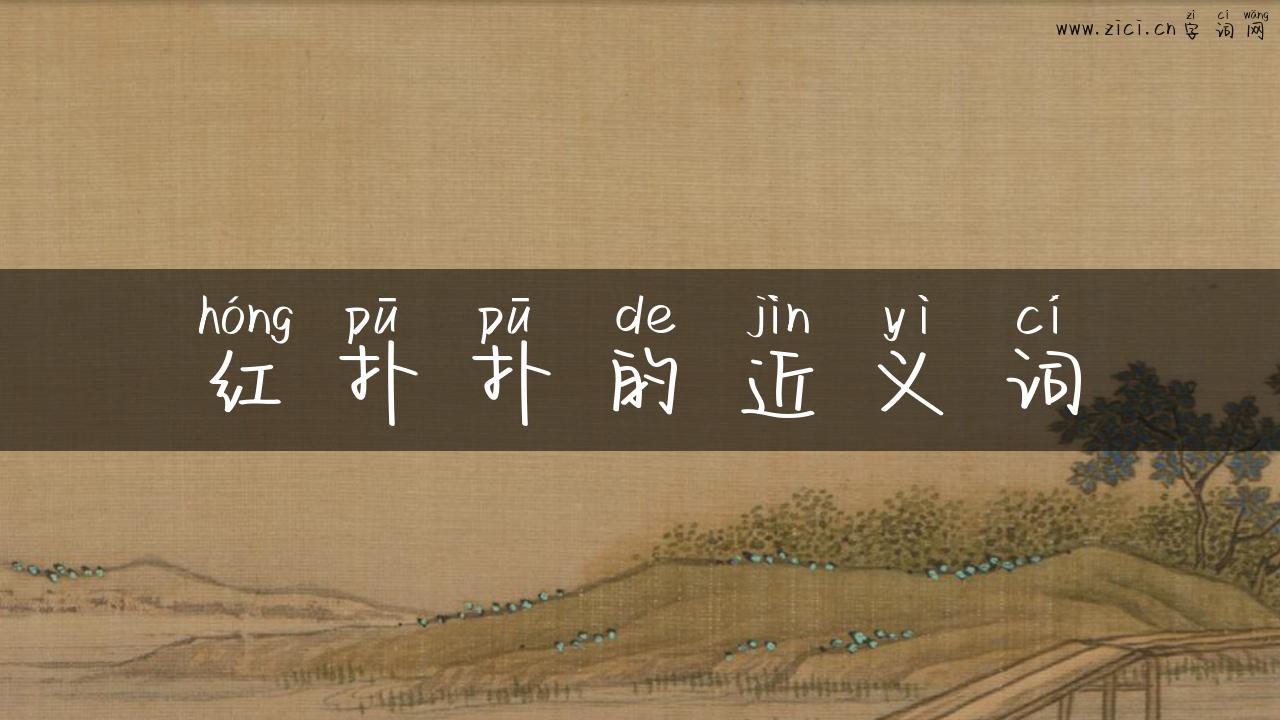 zì cí wǎng
www.zici.cn字词网
hóng pū pū de jìn yì cí
红扑扑的近义词